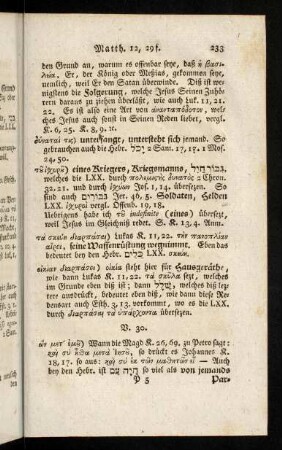 Matth. 12, 29 f. 233
den Grund an, warum es offenbar seye, daß ἡ βασι-
λεία. Er, der König oder Meßias, gekommen seye,
nemlich, weil Er den Satan überwinde. Diß ist we-
nigstens die Folgerung, welche Jesus Seinen Zuhö-
rern daraus zu ziehen überläßt, wie auch Luk. 11, 21.
22. Es ist also eine Art von ἀνανταπόδοτον, welches
Jesus auch sonst in Seinen Reden liebet, vergl.
K. 6, 25. K. 8, 9. u.
δύναταί τις) untersteht sich jemand. So
gebrauchen auch die Hebr. יכל 2 Sam. 17, 17. 1 Mos.
24, 50.
τοῦ ἰσχυροῦ) eines Kriegers, Kriegsmanns,
גבור חיל, welches die LXX. durch πολεμιστὴς δυνατός 2 Chron.
32, 21. und durch ἰσχύων Jos. 1, 14. übersetzen. So
sind auch גבורים Jer. 46, 5. Soldaten, Helden
LXX. ἰσχυροί vergl. Offenb. 19, 18.
Uebrigens habe ich τοῦ indefinite (eines) übersetzt,
weil Jesus im Gleichniß redet. S. K. 13, 4. Anm.
τὰ σκεύη διαρπάσαι) Lukas K. 11, 22. τὴν πανοπλίαν
αἴρει, seine Waffenrüstung wegnimmt. Eben das
bedeutet bey den Hebr. כלים LXX. σκεύη.
οἰκίαν διαρπάσει) οἰκία steht hier für Hausgeräthe,
wie dann Lukas K. 11, 22. τὰ σκῦλα sezt, welches
im Grunde eben diß ist; dann שלל, welches diß lez-
tere bedeutet, auch eben diß bedeutet, wie dann diese Re-
densart auch Esth. 3, 13. vorkommt, wo es die LXX.
durch διαρπάσαι τὰ ὑπάρχοντα übersetzen.
V. 30.
ὢν μετ᾽ ἐμοῦ) Wann die Magd K. 26, 69. zu Petro sagt:
καὶ σὺ ἦσθα μετὰ Ἰησοῦ, so drückt es Johannes K.
18, 17. so aus: καὶ σὺ ἐκ τῶν μαθητῶν εἶ — Auch
bey den Hebr. ist היה עם so viel als von jemands
P 5 Par-